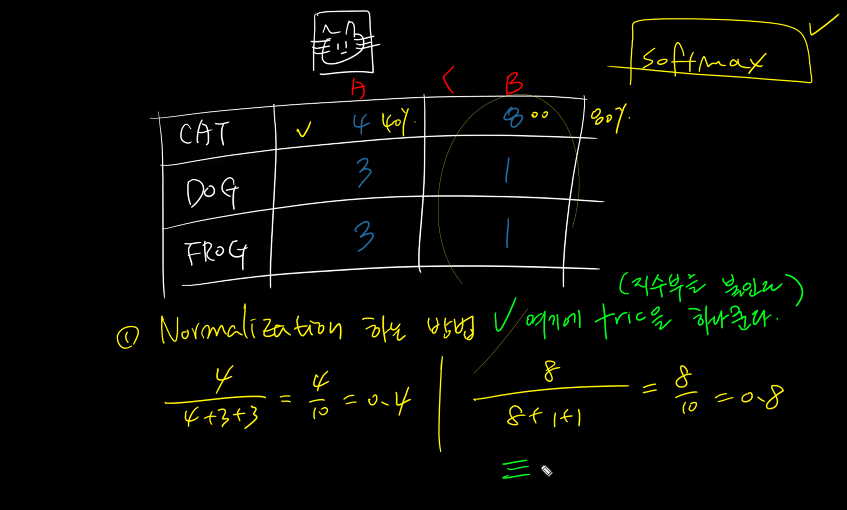 softmax
A < B
CAT 4 40% 8 00 80%
DOG 3 1
FROG 3 1
(지수부를 붙인다)
① Normalization 하는 방법 여기에 tric을 하나준다.
4 / 4+3+3 = 4/10 = 0.4
8 / 8+1+1 = 8/10 = 0.8